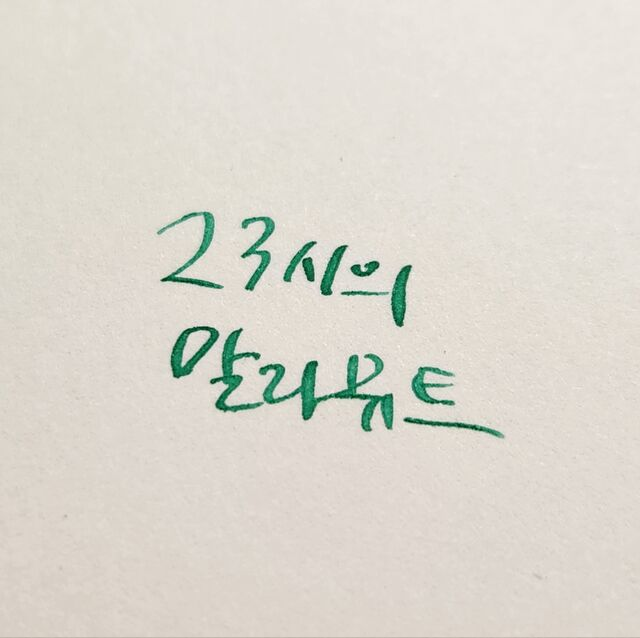 23시의
말라뷰트